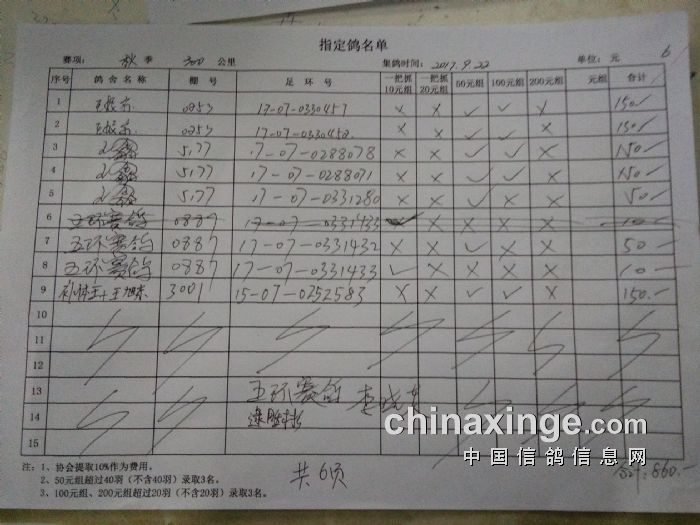 指定鸽名单
6
赛项: 秋 季 300 公里 集鸽时间: 2017.9.22 单位: 元
序号 鸽舍名称 棚号 足环号 一把抓10元组 一把抓20元组 50元组 100元组 200元组 元组 合计
1 0253 17-07-0330457 × × ✓ ✓ × 150.-
2 0253 17-07-0330452 × × ✓ ✓ × 150.-
3 5177 17-07-0288078 × × ✓ ✓ × 150.-
4 5177 17-07-0288071 × × ✓ ✓ × 150.-
5 5177 17-07-0331280 × × ✓ × × 50.-
6 五环赛鸽 0887 17-07-0331433 ✓ × × × × 10.-
7 五环赛鸽 0887 17-07-0331432 × × ✓ × × 50.-
8 五环赛鸽 0887 17-07-0331433 ✓ × × × × 10.-
9 3001 15-07-0252583 × × ✓ ✓ × 150.-
10
11
12
13 五环赛鸽
14
15
chinaxinge.com
中国信鸽信息网
注: 1、协会提取10%作为费用。
2、50元组超过40羽(不含40羽)录取3名。
3、100元组、200元组超过20羽(不含20羽)录取3名。
共6页
合计: 860.-